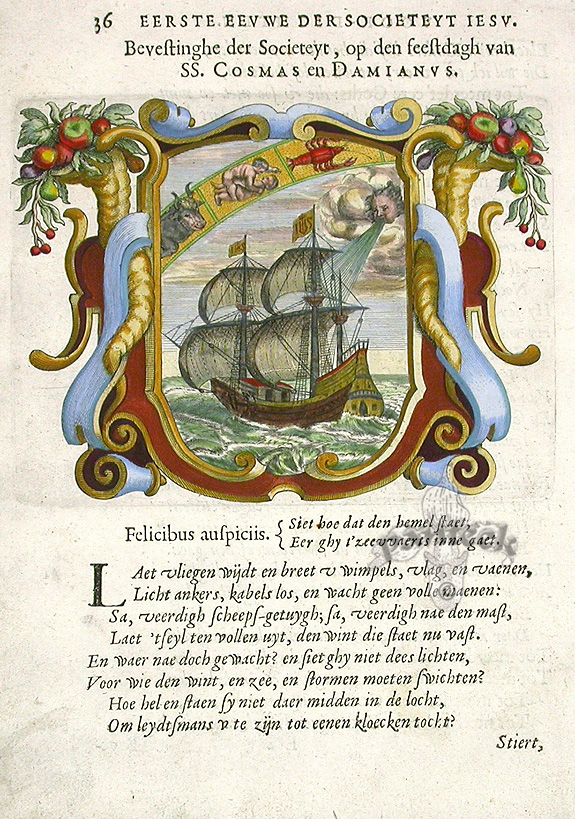 36 EERSTE EEVWE DER SOCIETEYT IESV.
Bevestinghe der Societeyt, op den feestdagh van
SS. COSMAS en DAMIANVS.
Felicibus auspiciis. { Siet hoe dat den hemel staet,
Eer ghy t'zeevvaerts inne gaet.
LAet vliegen wijdt en breet v wimpels, vlag, en vaenen,
Licht ankers, kabels los, en wacht geen volle maenen:
Sa, veerdigh scheeps-getuygh; sa, veerdigh nae den mast,
Laet 'tseyl ten vollen uyt, den wint die staet nu vast.
En waer nae doch gewacht? en siet ghy niet dees lichten,
Voor wie den wint, en zee, en stormen moeten swichten?
Hoe hel en staen sy niet daer midden in de locht,
Om leydtsmans v te zijn tot eenen kloecken tocht?
Stiert,